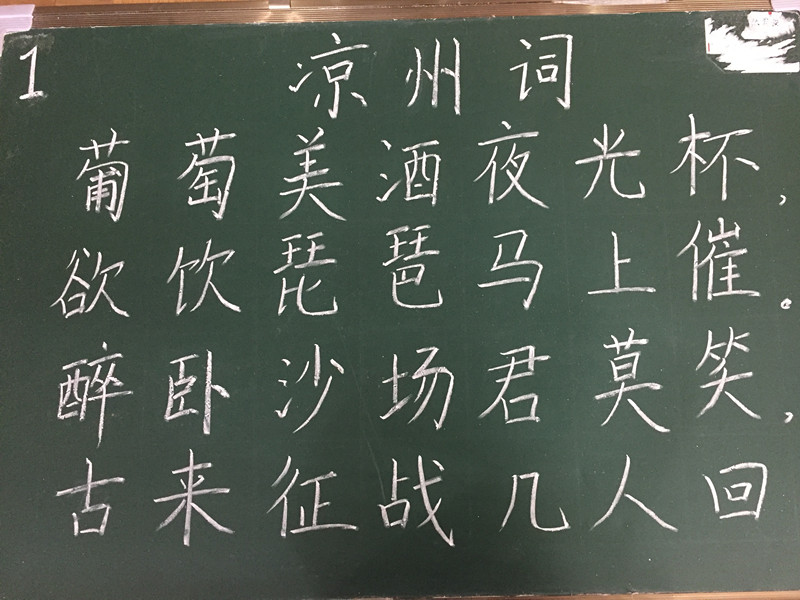 1 凉州词
葡萄美酒夜光杯,
欲饮琵琶马上催。
醉卧沙场君莫笑,
古来征战几人回